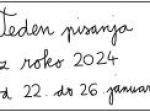 Teden pisanja
z roko 2024
od 22. do 26 januar